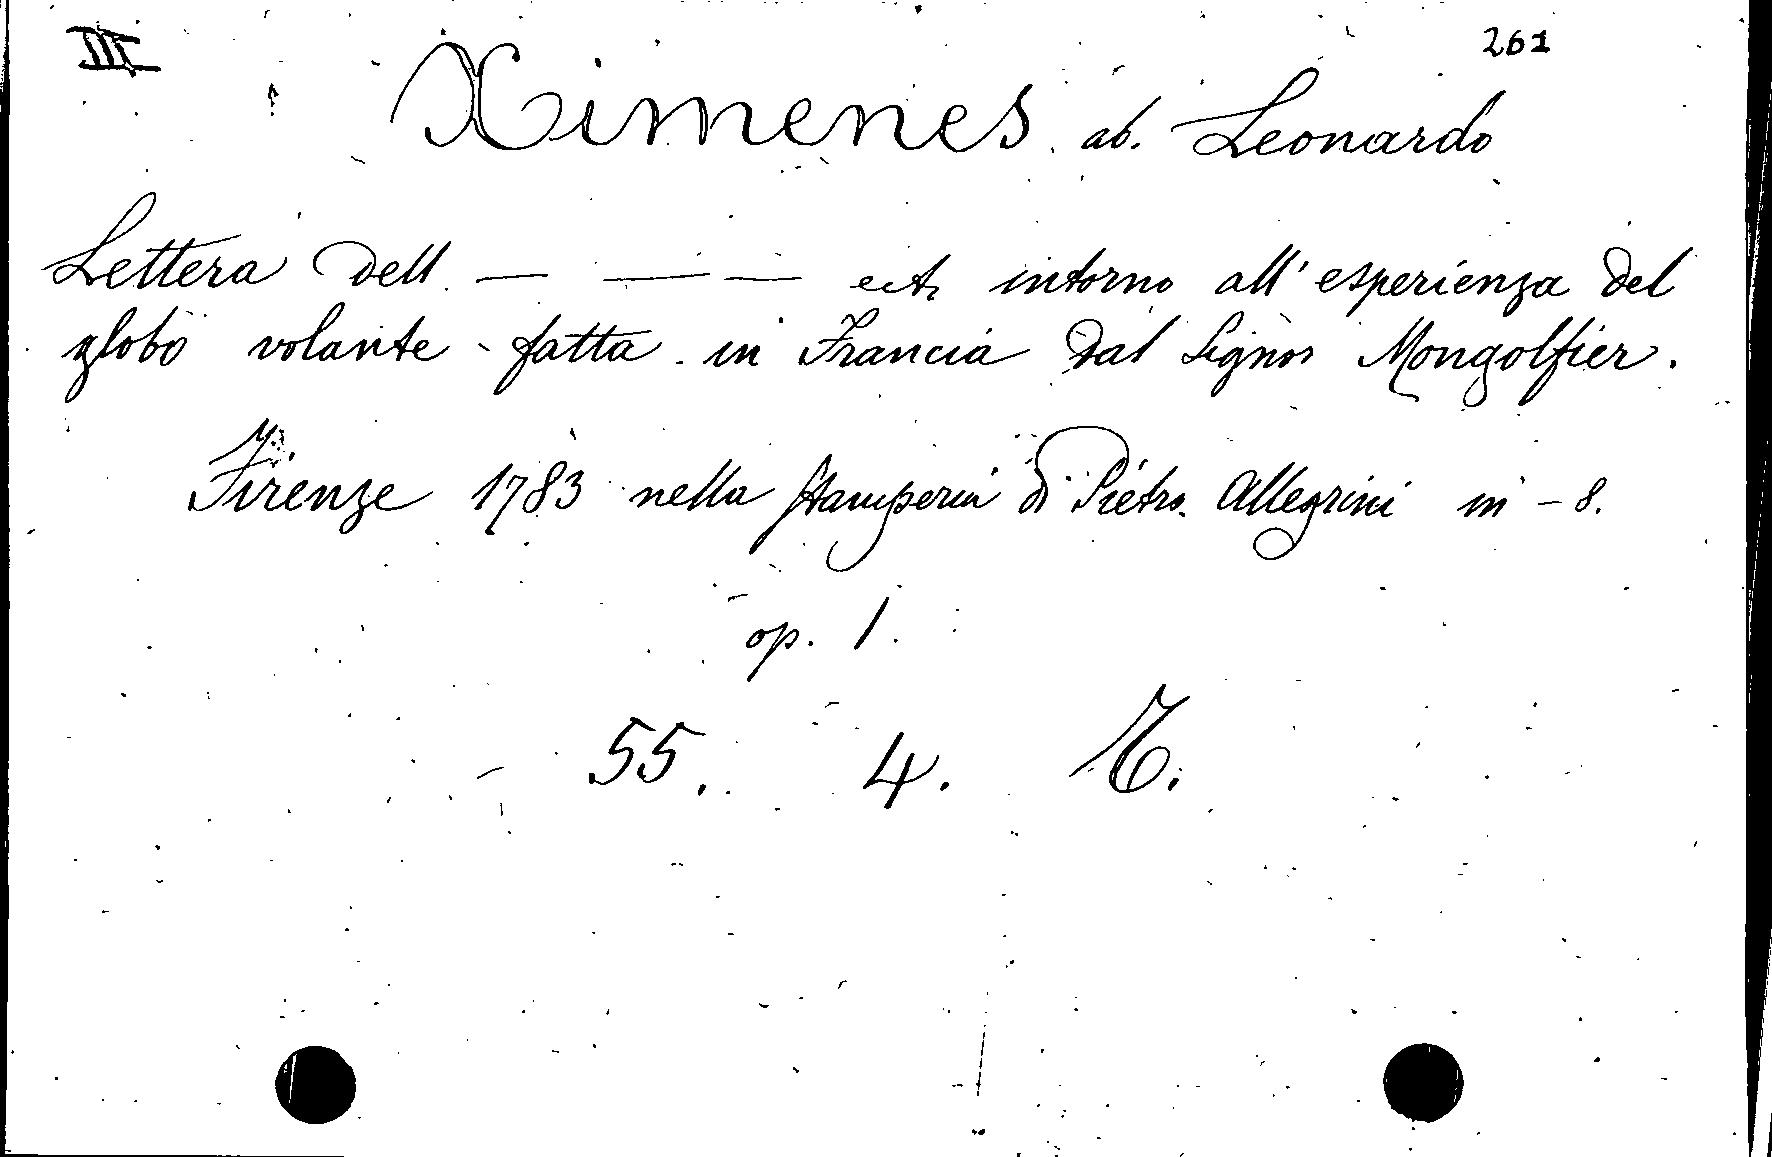 III 261
Ximenes ab. Leonardo
Lettera dell — — — ect. intorno all' esperienza del
globo volante fatta in Francia dal Signor Mongolfier.
Firenze 1783 nella stamperia di Pietro Allegrini in - 8.
op. 1.
55. 4.